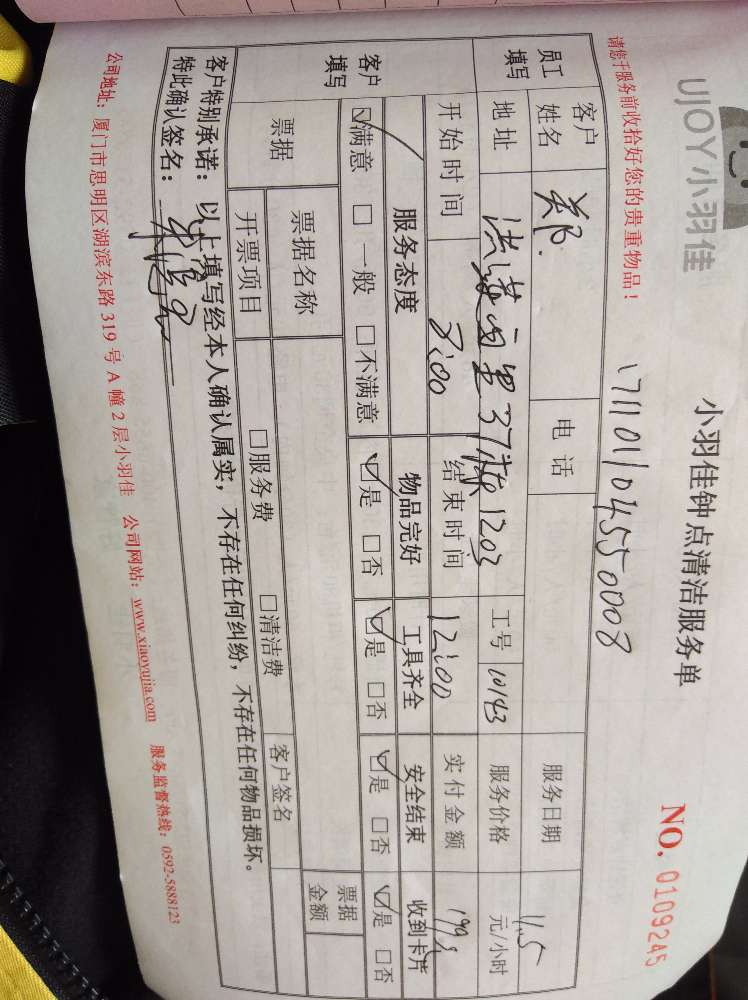 UJOY小羽佳
小羽佳钟点清洁服务单
NO. 0109245
请您于服务前收拾好您的贵重物品!
171101104550008
员工填写
客户姓名 郑 电话 服务日期 11.5
地址 洪莲西里37栋1203 工号 10143 服务价格 元/小时
开始时间 7:00 结束时间 12:00 实付金额
客户填写
服务态度 物品完好 工具齐全 安全结束 收到卡片
☑满意 □一般 □不满意 ☑是 □否 ☑是 □否 ☑是 □否 ☑是 □否
票据 票据名称 票据金额
开票项目 □服务费 □清洁费 客户签名
客户特别承诺:以上填写经本人确认属实,不存在任何纠纷,不存在任何物品损坏。
特此确认签名:
公司地址:厦门市思明区湖滨东路319号A幢2层小羽佳 公司网站:www.xiaoyujia.com 服务监督热线:0592-5888123